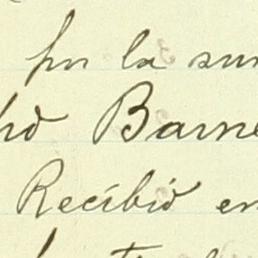 por la sum
Barne
Recibió en